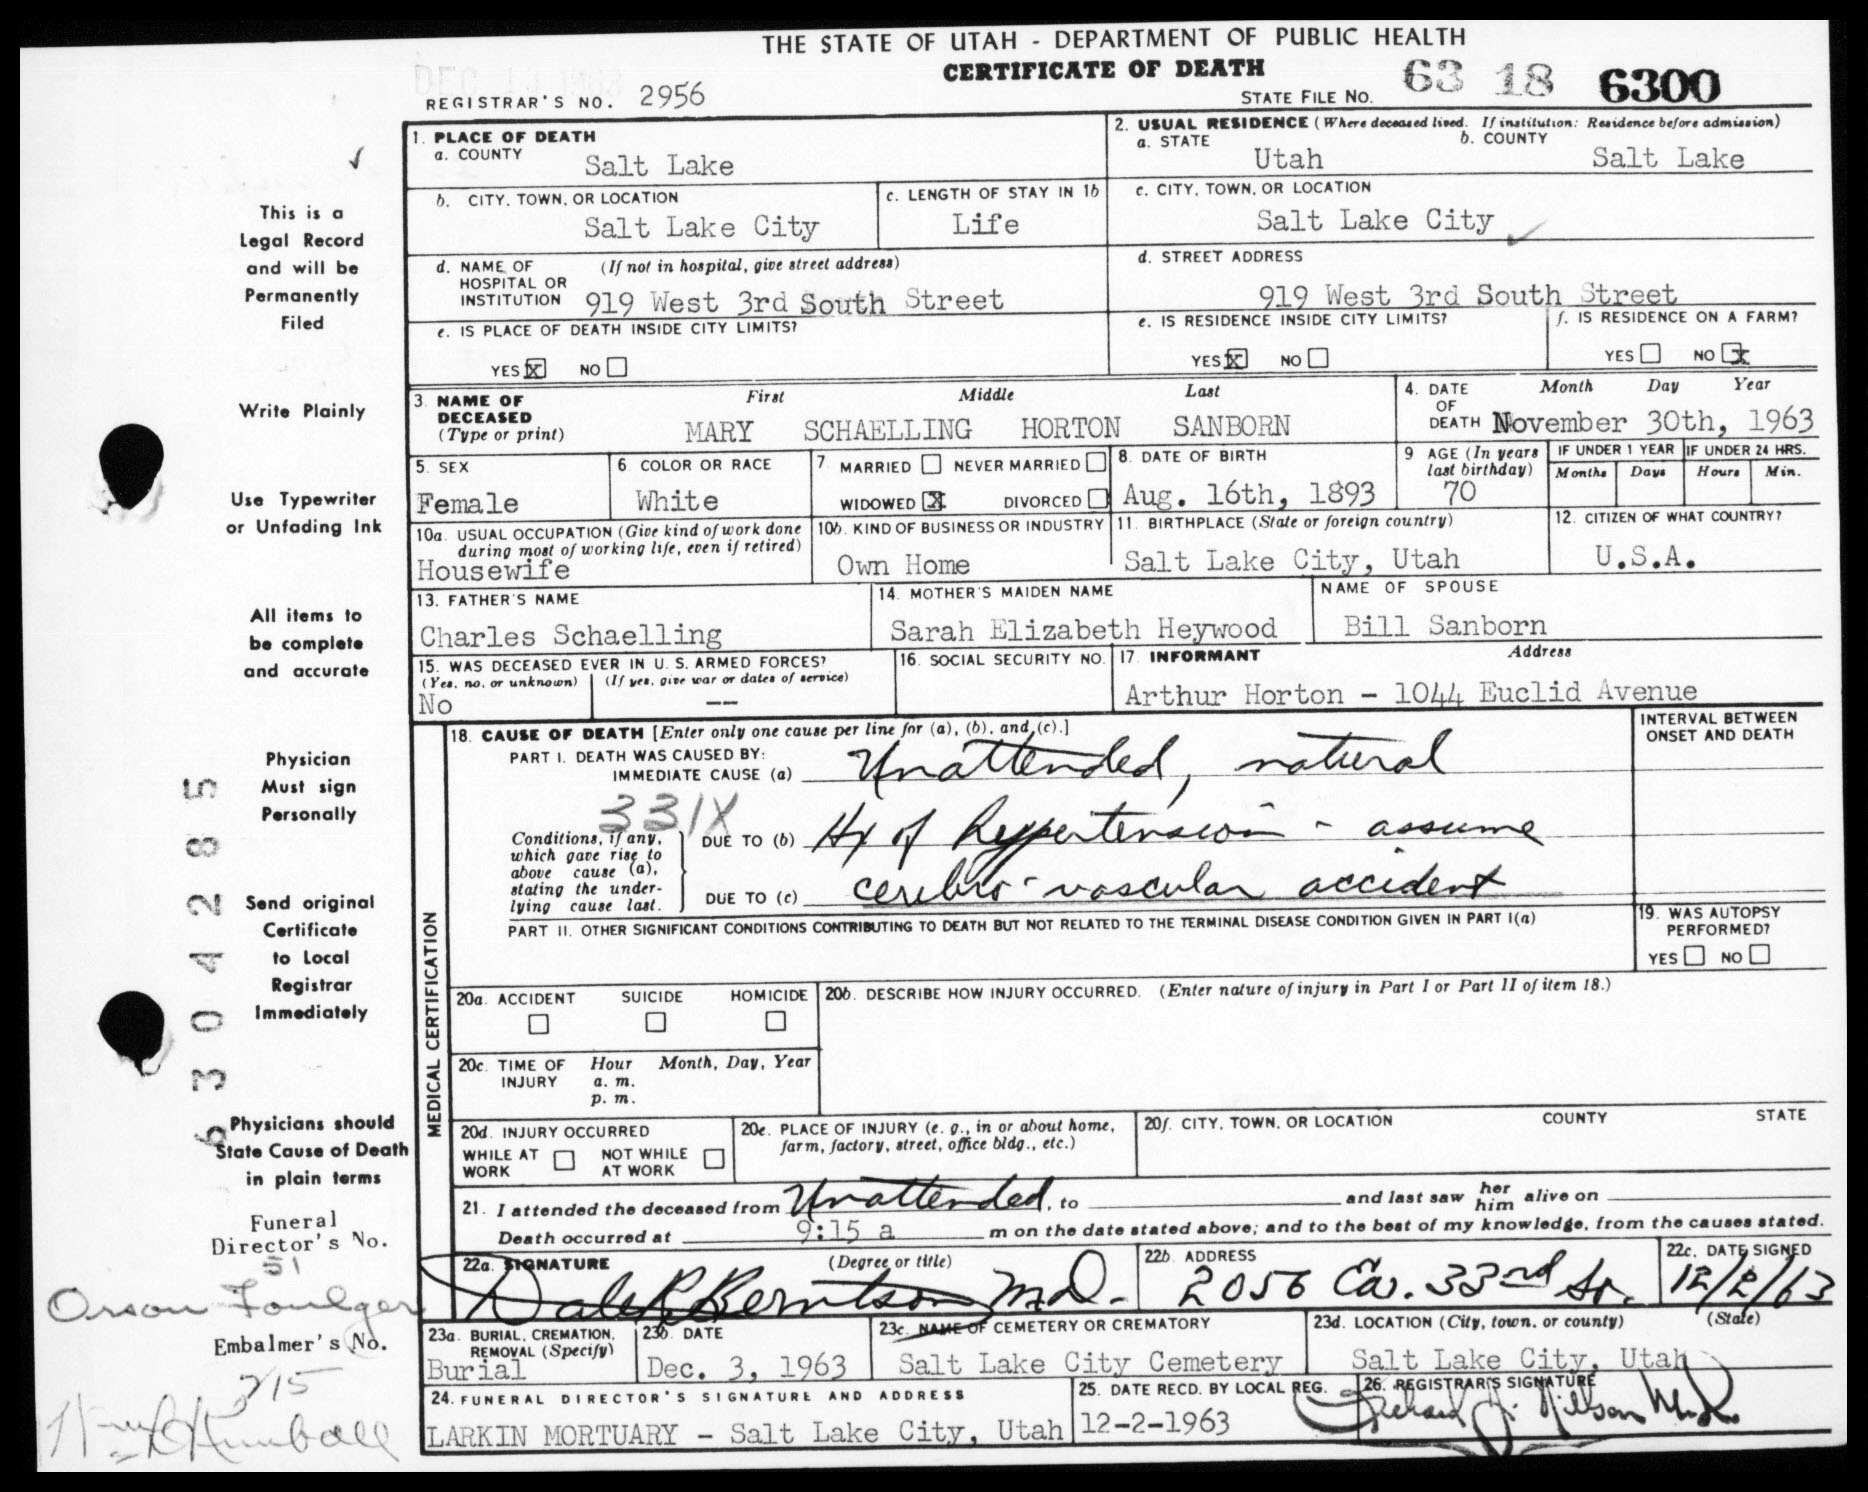 THE STATE OF UTAH - DEPARTMENT OF PUBLIC HEALTH
CERTIFICATE OF DEATH
REGISTRAR'S NO. 2956
STATE FILE NO. 63 18 6300
1. PLACE OF DEATH
a. COUNTY
Salt Lake
2. USUAL RESIDENCE (Where deceased lived. If institution: Residence before admission)
a. STATE
Utah
b. COUNTY
Salt Lake
b. CITY, TOWN, OR LOCATION
Salt Lake City
c. LENGTH OF STAY IN 1b
Life
c. CITY, TOWN, OR LOCATION
Salt Lake City
d. NAME OF HOSPITAL OR INSTITUTION
(If not in hospital, give street address)
919 West 3rd South Street
d. STREET ADDRESS
919 West 3rd South Street
e. IS PLACE OF DEATH INSIDE CITY LIMITS?
YES X NO
e. IS RESIDENCE INSIDE CITY LIMITS?
YES X NO
f. IS RESIDENCE ON A FARM?
YES NO X
3. NAME OF DECEASED
(Type or print)
First Middle Last
MARY SCHAELLING HORTON SANBORN
4. DATE OF DEATH
Month Day Year
November 30th, 1963
5. SEX
Female
6. COLOR OR RACE
White
7. MARRIED NEVER MARRIED
WIDOWED X DIVORCED
8. DATE OF BIRTH
Aug. 16th, 1893
9 AGE (In years last birthday)
70
IF UNDER 1 YEAR
Months Days
IF UNDER 24 HRS.
Hours Min.
10a. USUAL OCCUPATION (Give kind of work done during most of working life, even if retired)
Housewife
10b. KIND OF BUSINESS OR INDUSTRY
Own Home
11. BIRTHPLACE (State or foreign country)
Salt Lake City, Utah
12. CITIZEN OF WHAT COUNTRY?
U.S.A.
13. FATHER'S NAME
Charles Schaelling
14. MOTHER'S MAIDEN NAME
Sarah Elizabeth Heywood
NAME OF SPOUSE
Bill Sanborn
15. WAS DECEASED EVER IN U. S. ARMED FORCES?
(Yes, no, or unknown) (If yes, give war or dates of service)
No --
16. SOCIAL SECURITY NO.
17. INFORMANT Address
Arthur Horton - 1044 Euclid Avenue
MEDICAL CERTIFICATION
18. CAUSE OF DEATH [Enter only one cause per line for (a), (b), and (c).]
INTERVAL BETWEEN ONSET AND DEATH
PART I. DEATH WAS CAUSED BY:
IMMEDIATE CAUSE (a) Unattended, natural
331X
Conditions, if any, which gave rise to above cause (a), stating the underlying cause last.
DUE TO (b) Hx of hypertension - assume
DUE TO (c) cerebro-vascular accident
PART II. OTHER SIGNIFICANT CONDITIONS CONTRIBUTING TO DEATH BUT NOT RELATED TO THE TERMINAL DISEASE CONDITION GIVEN IN PART I(a)
19. WAS AUTOPSY PERFORMED?
YES NO
20a. ACCIDENT SUICIDE HOMICIDE
20b. DESCRIBE HOW INJURY OCCURRED. (Enter nature of injury in Part I or Part II of item 18.)
20c. TIME OF INJURY
Hour Month, Day, Year
a. m.
p. m.
20d. INJURY OCCURRED
WHILE AT WORK NOT WHILE AT WORK
20e. PLACE OF INJURY (e. g., in or about home, farm, factory, street, office bldg., etc.)
20f. CITY, TOWN, OR LOCATION COUNTY STATE
21. I attended the deceased from Unattended, to and last saw her him alive on
Death occurred at 9:15 a m on the date stated above; and to the best of my knowledge, from the causes stated.
22a. SIGNATURE (Degree or title)
Dale R Berntson M.D.
22b. ADDRESS
2056 Ea. 33rd So.
22c. DATE SIGNED
12/2/63
23a. BURIAL, CREMATION, REMOVAL (Specify)
Burial
23b. DATE
Dec. 3, 1963
23c. NAME OF CEMETERY OR CREMATORY
Salt Lake City Cemetery
23d. LOCATION (City, town, or county) (State)
Salt Lake City, Utah
24. FUNERAL DIRECTOR'S SIGNATURE AND ADDRESS
LARKIN MORTUARY - Salt Lake City, Utah
25. DATE RECD. BY LOCAL REG.
12-2-1963
26. REGISTRAR'S SIGNATURE
Richard J. Nilson M.D.
This is a
Legal Record
and will be
Permanently
Filed
Write Plainly
Use Typewriter
or Unfading Ink
All items to
be complete
and accurate
Physician
Must sign
Personally
Send original
Certificate
to Local
Registrar
Immediately
Physicians should
State Cause of Death
in plain terms
6 3 0 4 2 8 5
Funeral
Director's No.
51
Orson Foulger
Embalmer's No.
215
Kimball